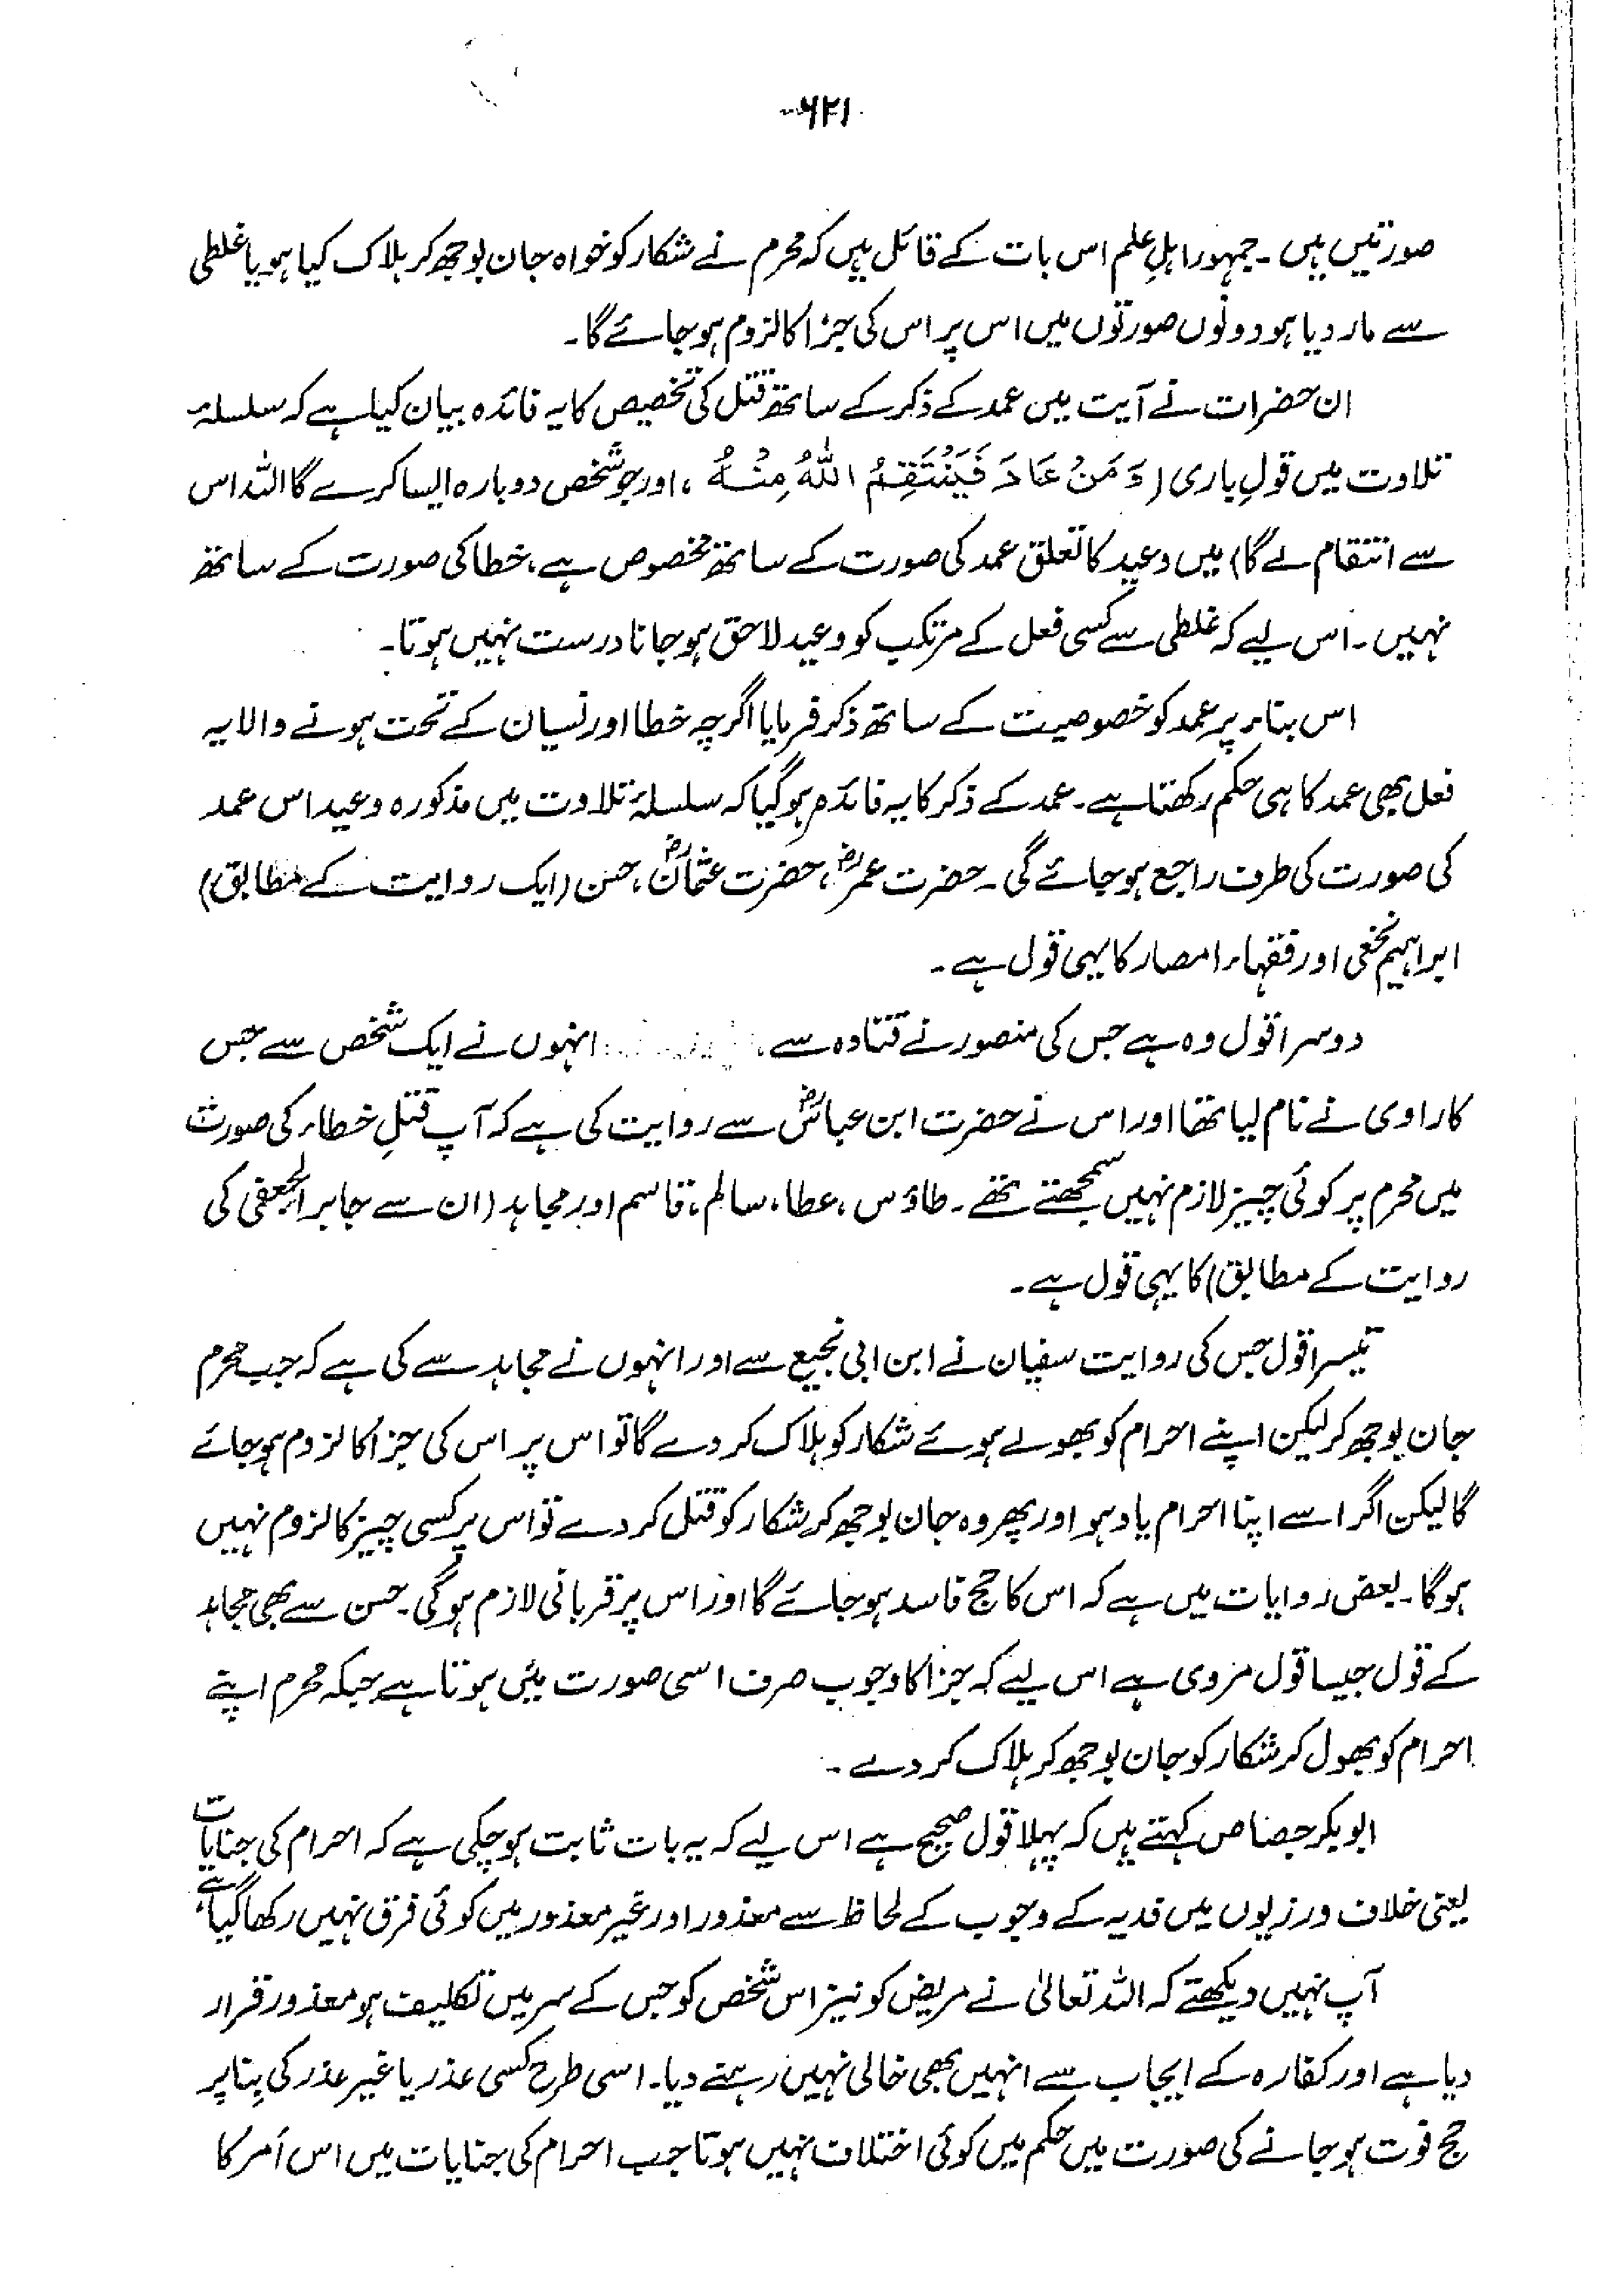 ۶۲۱
صورتیں ہیں۔ جمہور اہلِ علم اس بات کے قائل ہیں کہ محرم نے شکار کو خواہ جان بوجھ کر ہلاک کیا ہو یا غلطی
سے مار دیا ہو دونوں صورتوں میں اس پر اس کی جزا کا لزوم ہو جائے گا۔
ان حضرات نے آیت میں عمد کے ذکر کے ساتھ قتل کی تخصیص کا یہ فائدہ بیان کیا ہے کہ سلسلۂ
تلاوت میں قولِ باری (وَمَنْ عَادَ فَيَنْتَقِمُ اللهُ مِنْهُ، اور جو شخص دوبارہ ایسا کرے گا اللہ اس
سے انتقام لے گا) میں وعید کا تعلق عمد کی صورت کے ساتھ مخصوص ہے، خطا کی صورت کے ساتھ
نہیں۔ اس لیے کہ غلطی سے کسی فعل کے مرتکب کو وعید لاحق ہو جانا درست نہیں ہوتا۔
اس بناء پر عمد کو خصوصیت کے ساتھ ذکر فرمایا اگرچہ خطا اور نسیان کے تحت ہونے والا یہ
فعل بھی عمد کا ہی حکم رکھتا ہے۔ عمد کے ذکر کا یہ فائدہ ہو گیا کہ سلسلۂ تلاوت میں مذکورہ وعید اس عمد
کی صورت کی طرف راجع ہو جائے گی۔ حضرت عمرؓ، حضرت عثمانؓ، حسن (ایک روایت کے مطابق)
ابراہیم نخعی اور فقہاء امصار کا یہی قول ہے۔
دوسرا قول وہ ہے جس کی منصور نے قتادہ سے، انہوں نے ایک شخص سے جس
کا راوی نے نام لیا تھا اور اس نے حضرت ابن عباسؓ سے روایت کی ہے کہ آپ قتلِ خطاء کی صورت
میں محرم پر کوئی چیز لازم نہیں سمجھتے تھے۔ طاؤس، عطا، سالم، قاسم اور مجاہد (ان سے جابر الجعفی کی
روایت کے مطابق) کا یہی قول ہے۔
تیسرا قول جس کی روایت سفیان نے ابن ابی نجیع سے اور انہوں نے مجاہد سے کی ہے کہ جب محرم
جان بوجھ کر لیکن اپنے احرام کو بھولے ہوئے شکار کو ہلاک کر دے گا تو اس پر اس کی جزا کا لزوم ہو جائے
گا لیکن اگر اسے اپنا احرام یاد ہو اور پھر وہ جان بوجھ کر شکار کو قتل کر دے تو اس پر کسی چیز کا لزوم نہیں
ہوگا۔ بعض روایات میں ہے کہ اس کا حج فاسد ہو جائے گا اور اس پر قربانی لازم ہوگی۔ حسن سے بھی مجاہد
کے قول جیسا قول مروی ہے اس لیے کہ جزا کا وجوب صرف اسی صورت میں ہوتا ہے جبکہ محرم اپنے
احرام کو بھول کر شکار کو جان بوجھ کر ہلاک کر دے۔
ابوبکر جصاص کہتے ہیں کہ پہلا قول صحیح ہے اس لیے کہ یہ بات ثابت ہو چکی ہے کہ احرام کی جنایات
یعنی خلاف ورزیوں میں فدیہ کے وجوب کے لحاظ سے معذور اور غیر معذور میں کوئی فرق نہیں رکھا گیا ہے،
آپ نہیں دیکھتے کہ اللہ تعالیٰ نے مریض کو نیز اس شخص کو جس کے سر میں تکلیف ہو معذور قرار
دیا ہے اور کفارہ کے ایجاب سے انہیں بھی خالی نہیں رہنے دیا۔ اسی طرح کسی عذر یا غیر عذر کی بنا پر
حج فوت ہو جانے کی صورت میں حکم میں کوئی اختلاف نہیں ہوتا جب احرام کی جنایات میں اس اَمر کا